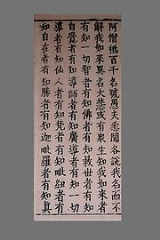 阿僧祇百千名號愚夫悉聞各說我名而不
解我如來異名大慧或有眾生知我如來者
有知一切智者有知佛者有知救世者有知
自覺者有知導師者有知廣導者有知一切
導者有知仙人者有知梵者有知毗紐者有
知自在者有知勝者有知迦毗羅者有知真